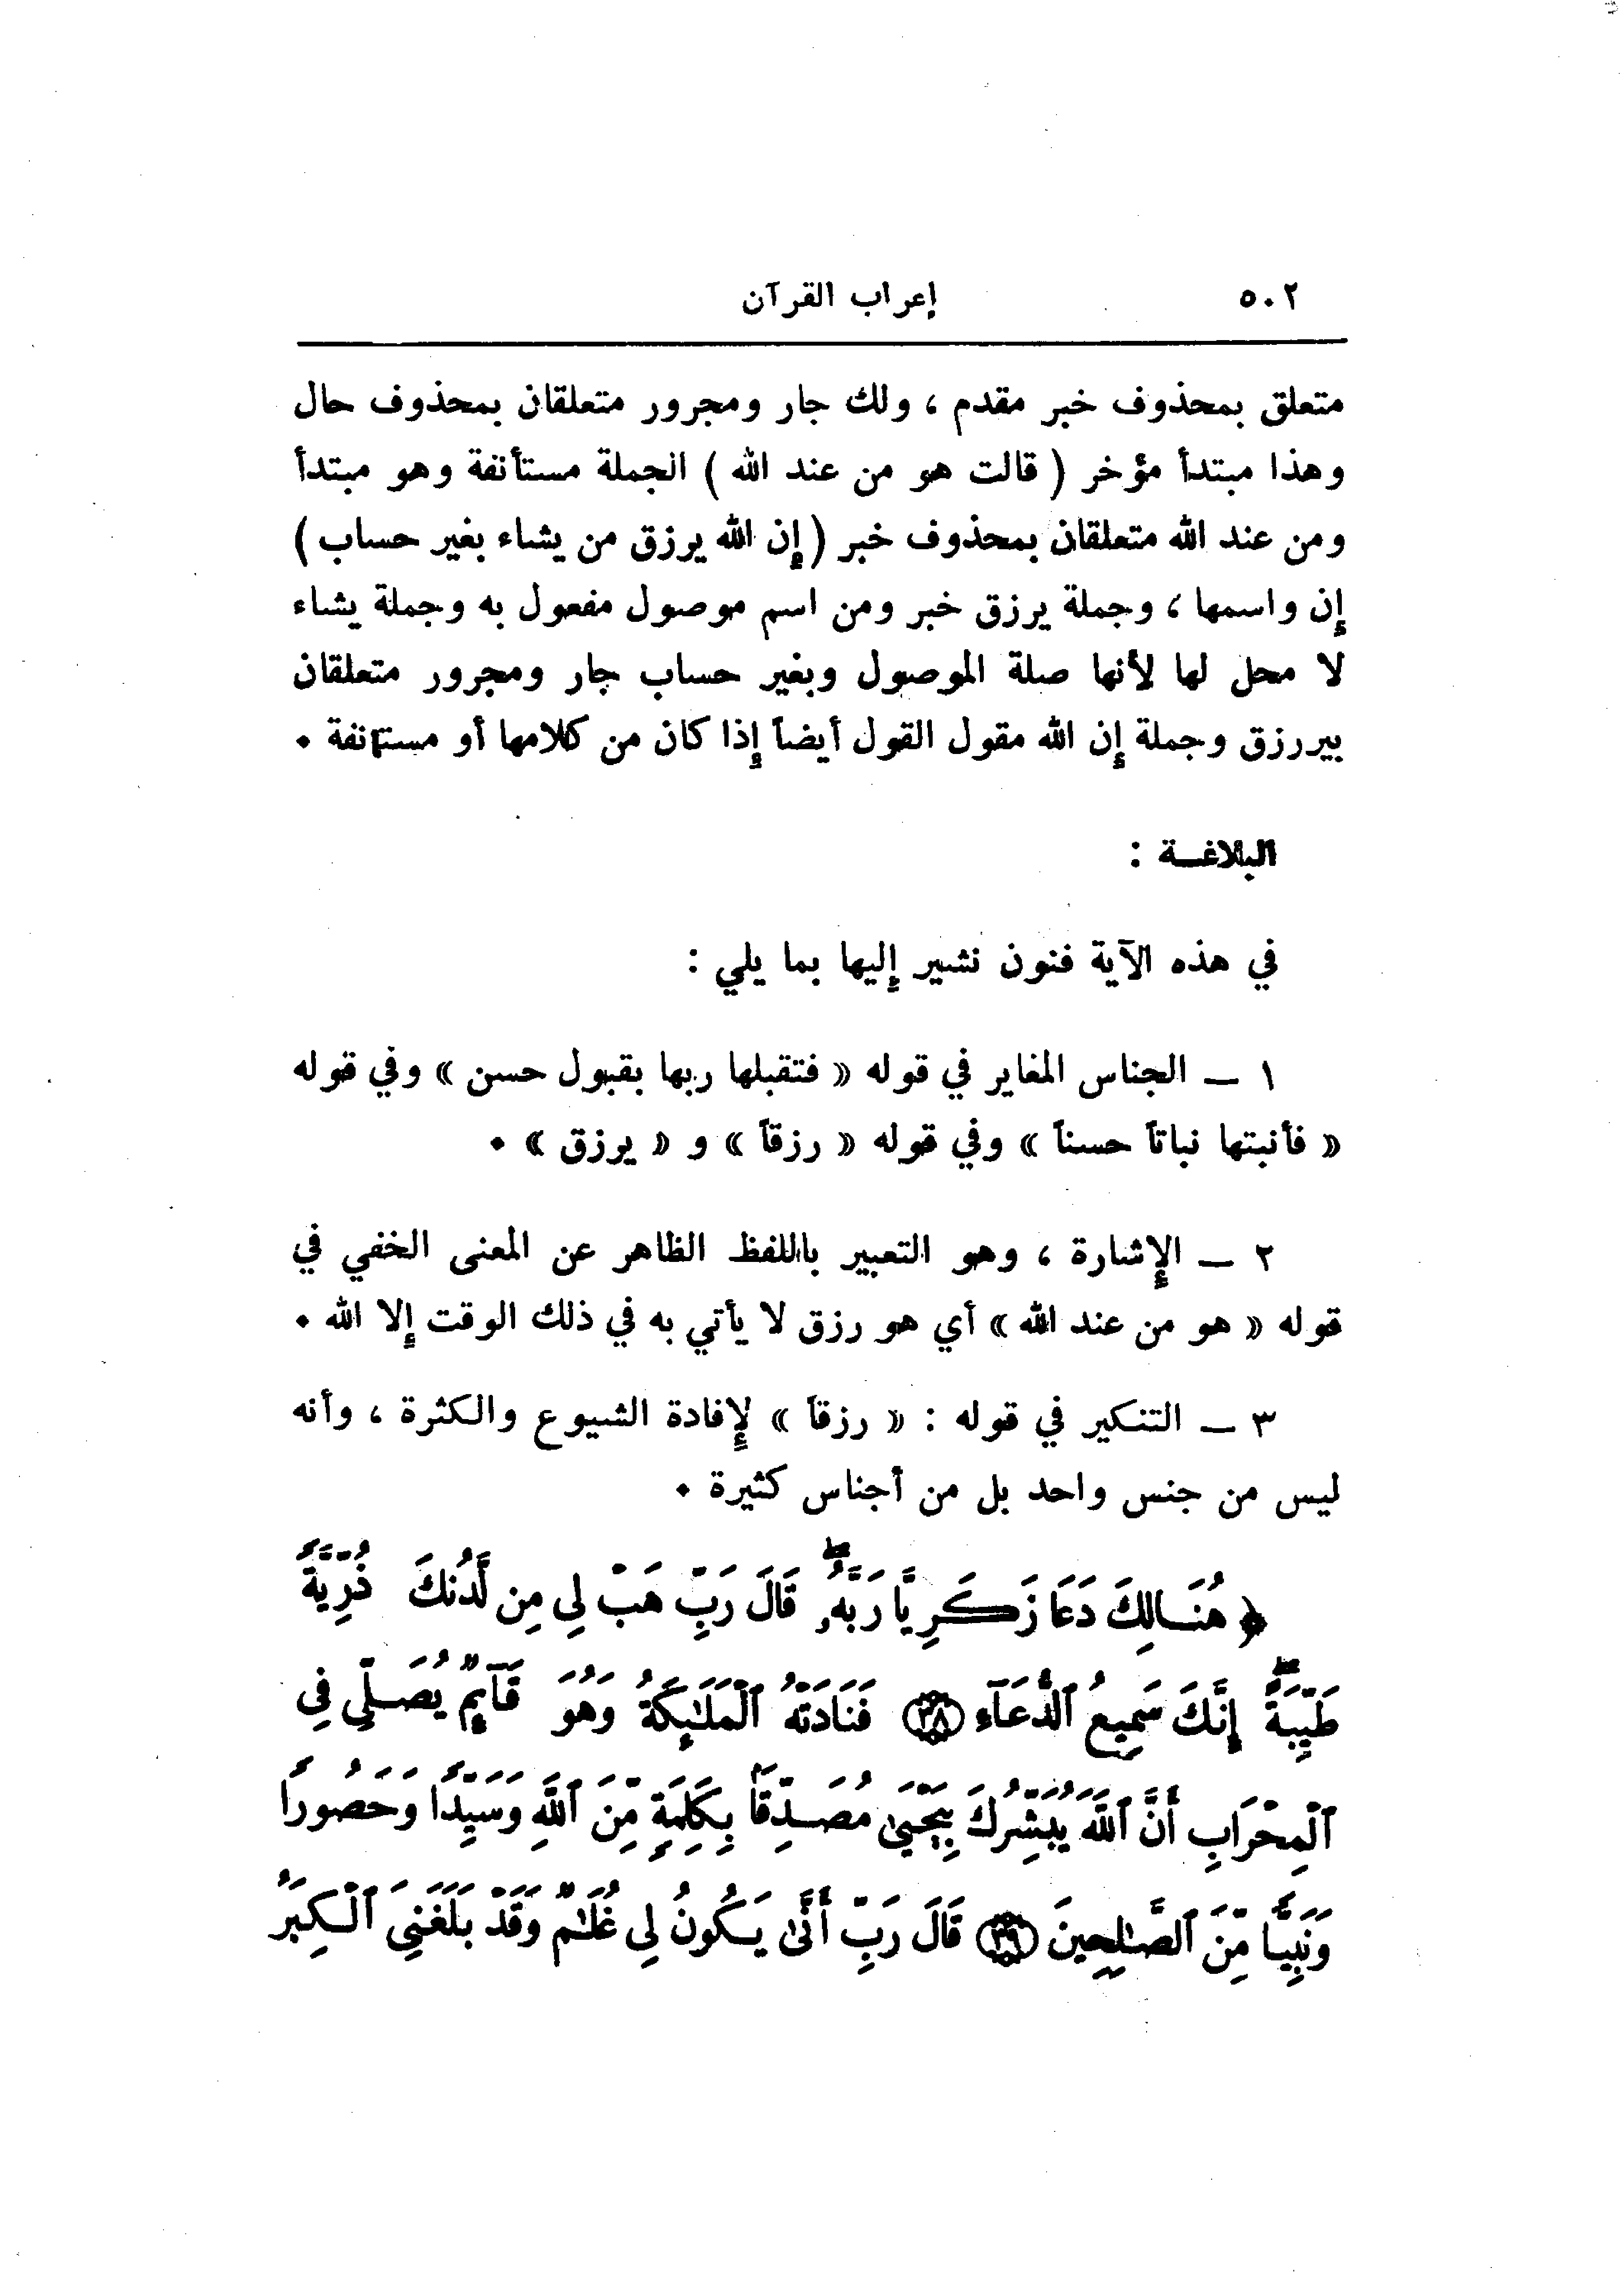 ٥٠٢ إعراب القرآن
متعلق بمحذوف خبر مقدم ، ولك جار ومجرور متعلقان بمحذوف حال
وهذا مبتدأ مؤخر ( قالت هو من عند الله ) الجملة مستأنفة وهو مبتدأ
ومن عند الله متعلقان بمحذوف خبر ( إن الله يرزق من يشاء بغير حساب )
إن واسمها ، وجملة يرزق خبر ومن اسم موصول مفعول به وجملة يشاء
لا محل لها لأنها صلة الموصول وبغير حساب جار ومجرور متعلقان
بيرزق وجملة إن الله مقول القول أيضاً إذا كان من كلامها أو مستأنفة .
البلاغة :
في هذه الآية فنون نشير إليها بما يلي :
١ ــ الجناس المغاير في قوله « فتقبلها ربها بقبول حسن » وفي قوله
« فأنبتها نباتاً حسناً » وفي قوله « رزقاً » و « يرزق » .
٢ ــ الإشارة ، وهو التعبير باللفظ الظاهر عن المعنى الخفي في
قوله « هو من عند الله » أي هو رزق لا يأتي به في ذلك الوقت إلا الله .
٣ ــ التنكير في قوله : « رزقاً » لإفادة الشيوع والكثرة ، وأنه
ليس من جنس واحد بل من أجناس كثيرة .
﴿ هُنَالِكَ دَعَا زَكَرِيَّا رَبَّهُۥۖ قَالَ رَبِّ هَبْ لِى مِن لَّدُنكَ ذُرِّيَّةً
طَيِّبَةًۖ إِنَّكَ سَمِيعُ ٱلدُّعَآءِ ﴿٣٨﴾ فَنَادَتْهُ ٱلْمَلَٰٓئِكَةُ وَهُوَ قَآئِمٌ يُصَلِّى فِى
ٱلْمِحْرَابِ أَنَّ ٱللَّهَ يُبَشِّرُكَ بِيَحْيَىٰ مُصَدِّقًۢا بِكَلِمَةٍ مِّنَ ٱللَّهِ وَسَيِّدًا وَحَصُورًا
وَنَبِيًّا مِّنَ ٱلصَّٰلِحِينَ ﴿٣٩﴾ قَالَ رَبِّ أَنَّىٰ يَكُونُ لِى غُلَٰمٌ وَقَدْ بَلَغَنِىَ ٱلْكِبَرُ